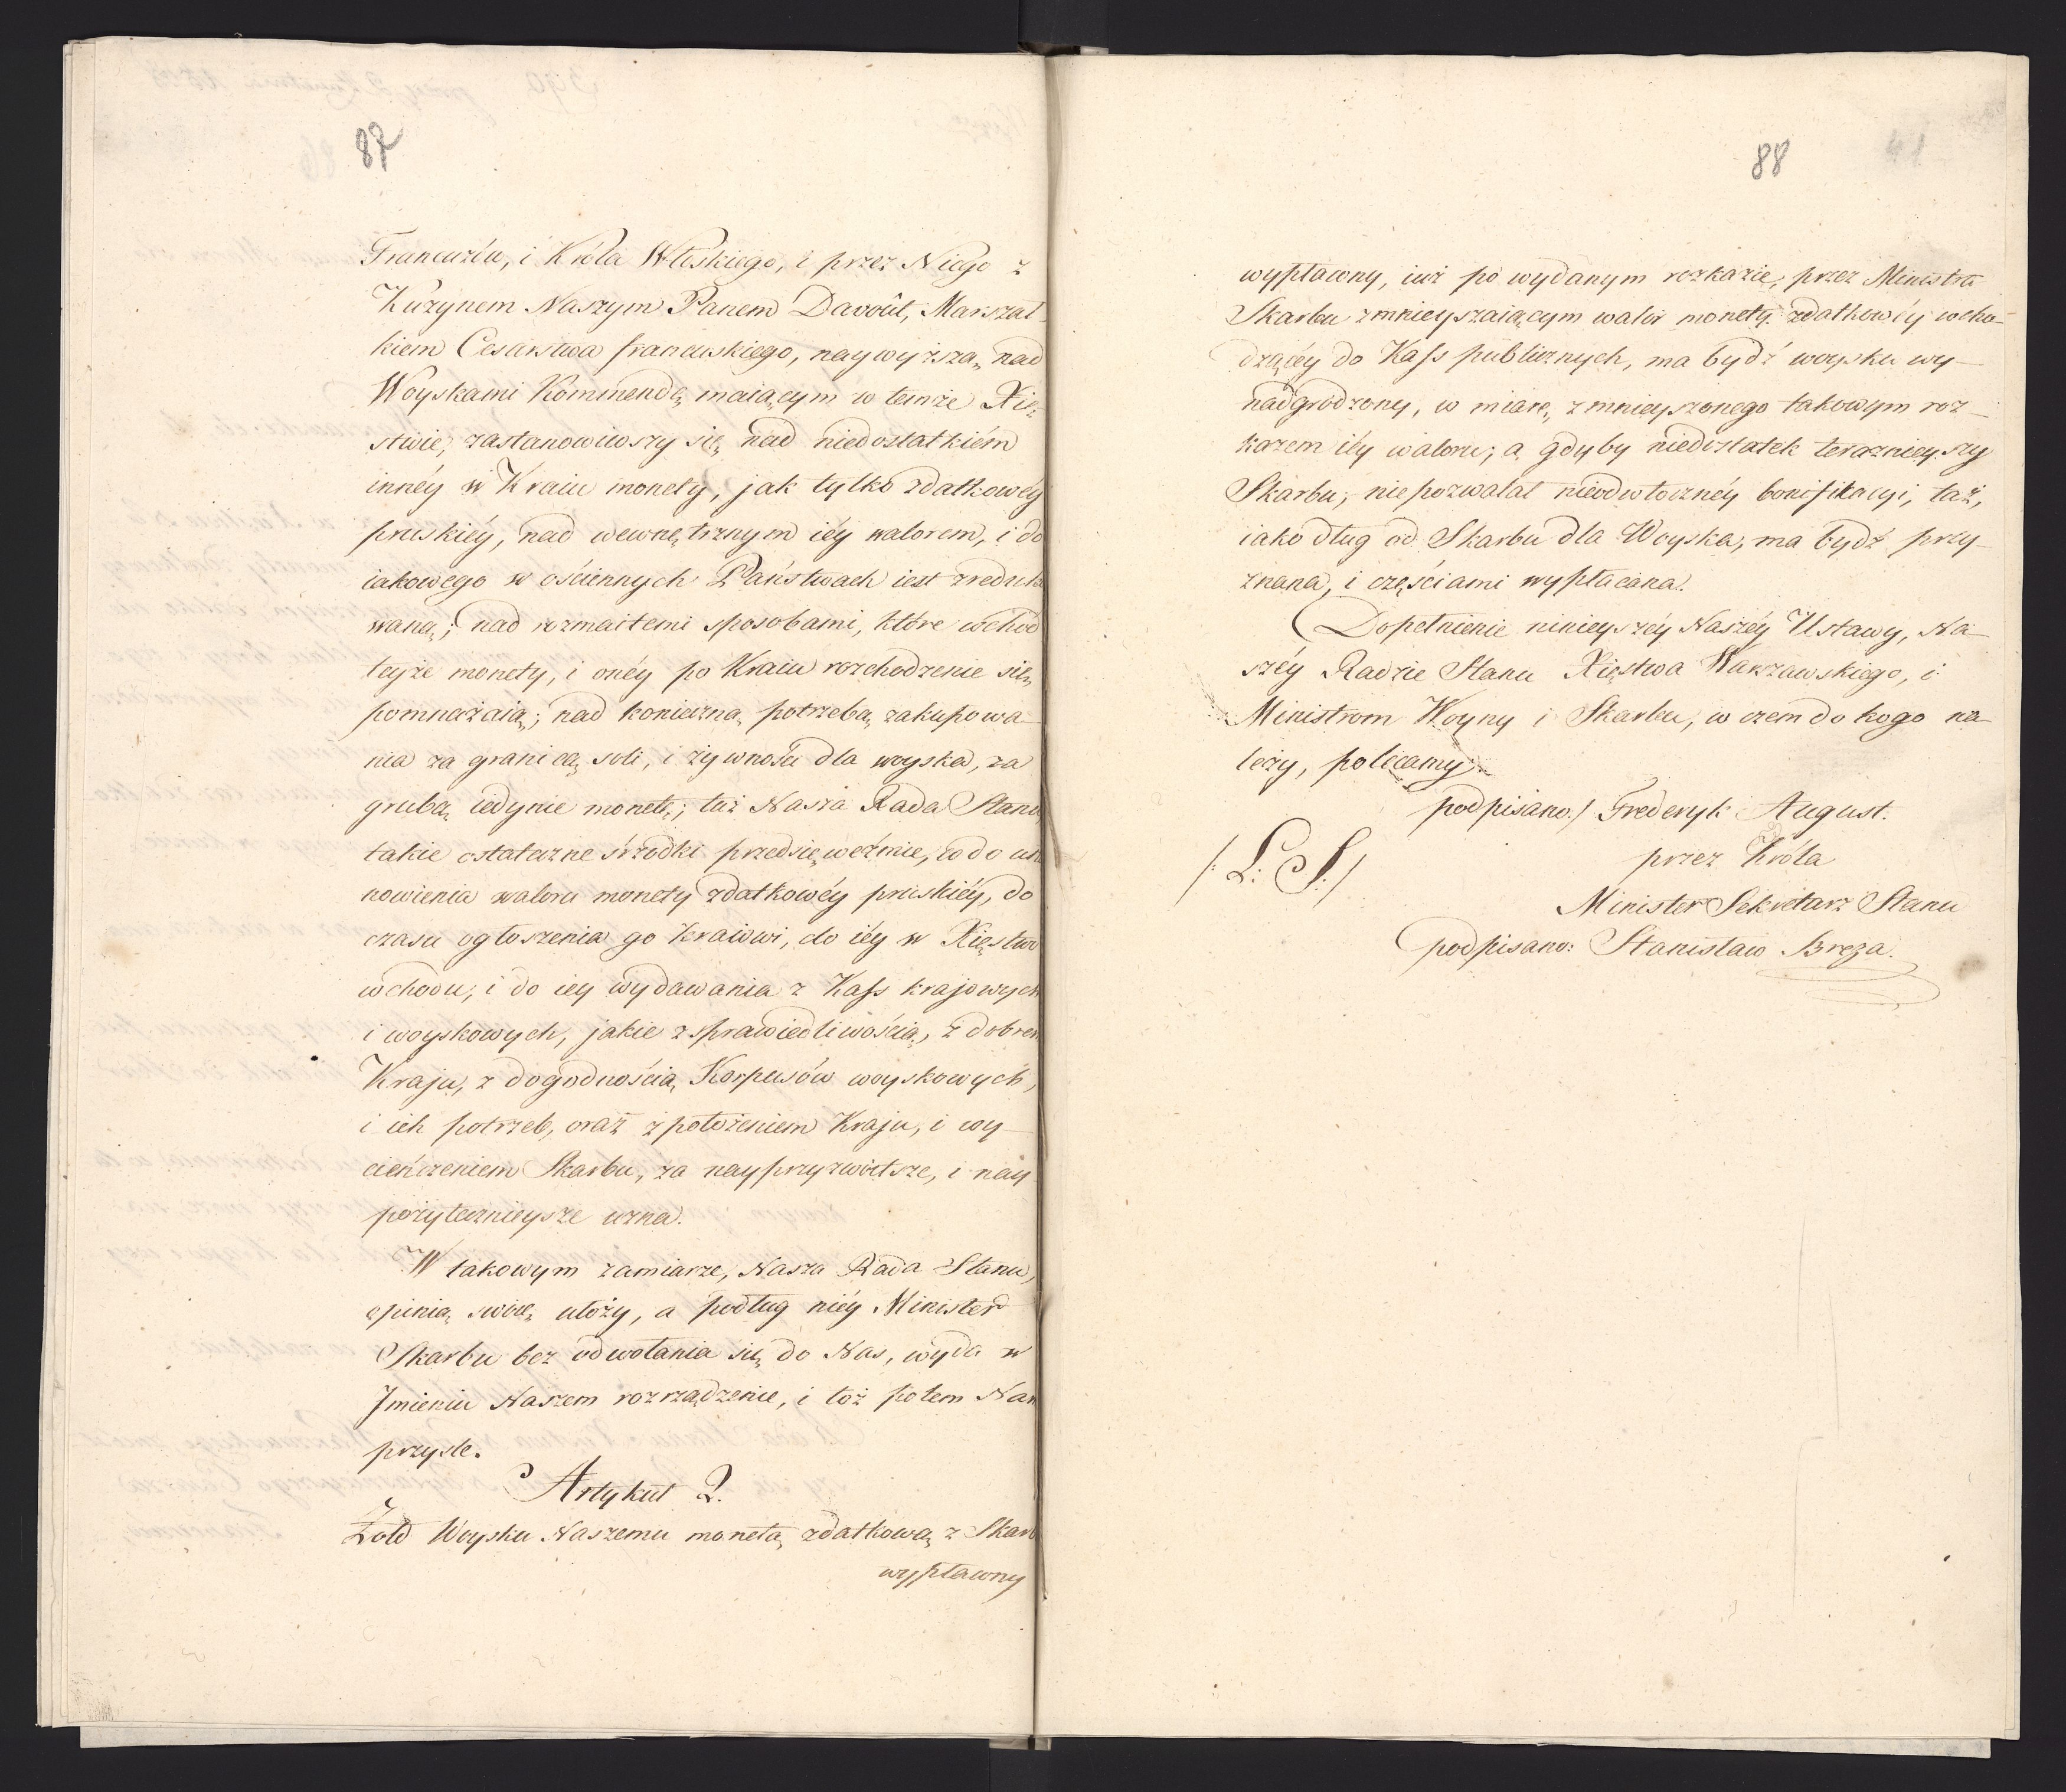 87
Francuzów, i Króla Włoskiego, i przez Niego z
Kuzynem Naszym Panem Davoût, Marszał-
kiem Cesarstwa francuskiego, naywyższą nad
Woyskami Kommendę maiącym w temże Xię-
stwie, zastanowiwszy się nad niedostatkiém
innéy w Kraiu monety, jak tylko zdatkowéy
pruskiéy, nad wewnętrznym iéy walorem, i do
iakowego w ościennych Państwach iest zreduko
waną; nad rozmaitemi sposobami, które wchód
teyże monety, i onéy po Kraiu rozchodzenie się
pomnażaią; nad konieczną potrzebą zakupowa-
nia za granicą soli, i żywności dla woyska, za
grubą iedynie monetę; taż Nasza Rada Stanu
takie ostateczne śrzodki przedsięweźmie, co do usta
nowienia waloru monety zdatkowéy pruskiéy, do
czasu ogłoszenia go Kraiowi, do iéy w Xięstwo
wchodu, i do iey wydawania z Kass krajowych
i woyskowych, jakie z sprawiedliwością, z dobrem
Kraju, z dogodnością Korpusów woyskowych,
i ich potrzeb, oraz z położeniem Kraju, i wy-
cieńczeniem Skarbu, za nayprzyzwoitsze, i nay
pożytecznieysze uzna.
W takowym zamiarze, Nasza Rada Stanu,
opinią swoię ułoży, a podług niéy Minister
Skarbu bez odwołania się do Nas, wyda w
Jmieniu Naszem rozrządzenie, i toż potem Nam
przyśle.
Artykuł 2.
Żołd Woysku Naszemu monetą zdatkową z Skarbu
wypławny
88
41
wypławny, iuż po wydanym rozkazie, przez Ministra
Skarbu zmnieyszaiącym walor monety zdatkowéy wcho-
dzącéy do Kass publicznych, ma bydź woysku wy-
nadgrodzony, w miarę zmnieyszonego takowym roz-
kazem iéy waloru; a gdyby niedostatek teraznieyszy
Skarbu, niepozwalał nieodwłocznéy bonifikacyi, taż,
iako dług od Skarbu dla Woyska, ma bydź przy-
znana, i częściami wypłacana.
Dopełnienie ninieyszéy Naszéy Ustawy, Na-
széy Radzie Stanu Xięstwa Warszawskiego, i
Ministrom Woyny i Skarbu, w czem do kogo na-
leży, polecamy.
podpisano:/ Frederyk August.
przez Króla
/: L: S:/
Minister Sekretarz Stanu
podpisano: Stanisław Breza.